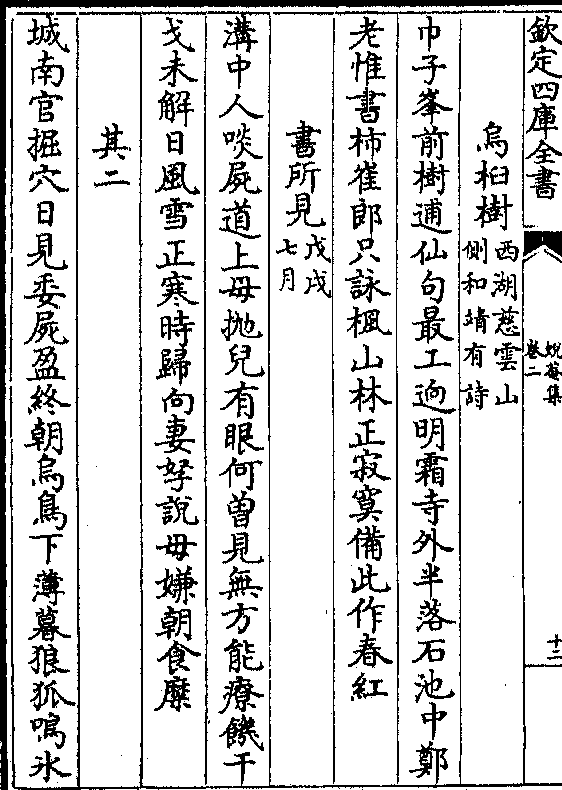 欽定四庫全書
蛻菴集
卷二
十二
烏桕樹西湖慈雲山
側和靖有詩
巾子峯前樹逋仙句最工逈明霜寺外半落石池中鄭
老惟書柿崔郎只詠楓山林正寂寞備此作春紅
書所見戊戌
七月
溝中人啖屍道上母抛兒有眼何曽見無方能療饑干
戈未解日風雪正寒時歸向妻孥說毋嫌朝食糜
其二
城南官掘穴日見委屍盈終朝烏鳥下薄暮狼狐鳴氷